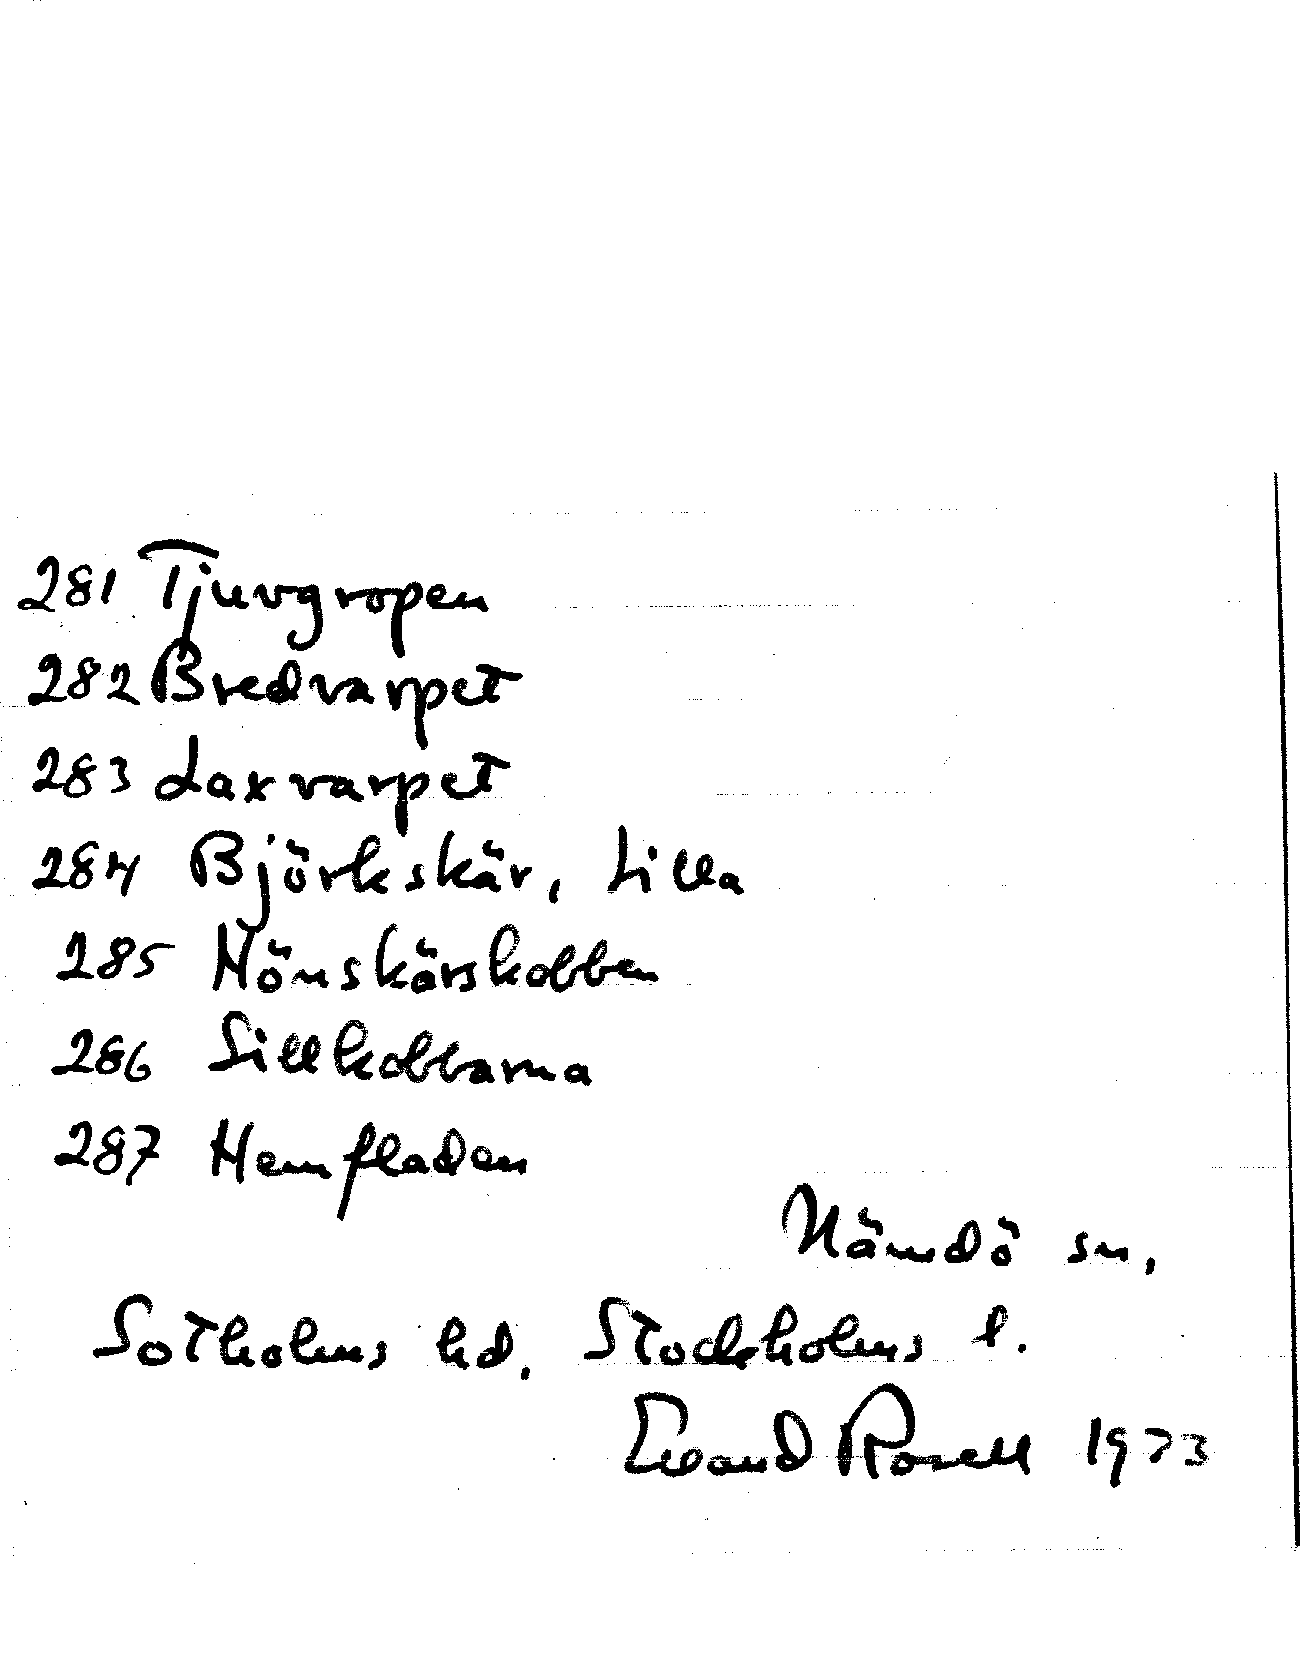 281 Tjuvgropen
282 Bredvarpet
283 Laxvarpet
284 Björkskär, Lilla
285 Hönskärskobben
286 Sillkobbarna
287 Hemfladen
Nämdö sn.
Sotholms hd. Stockholms l.
Rosell 1973